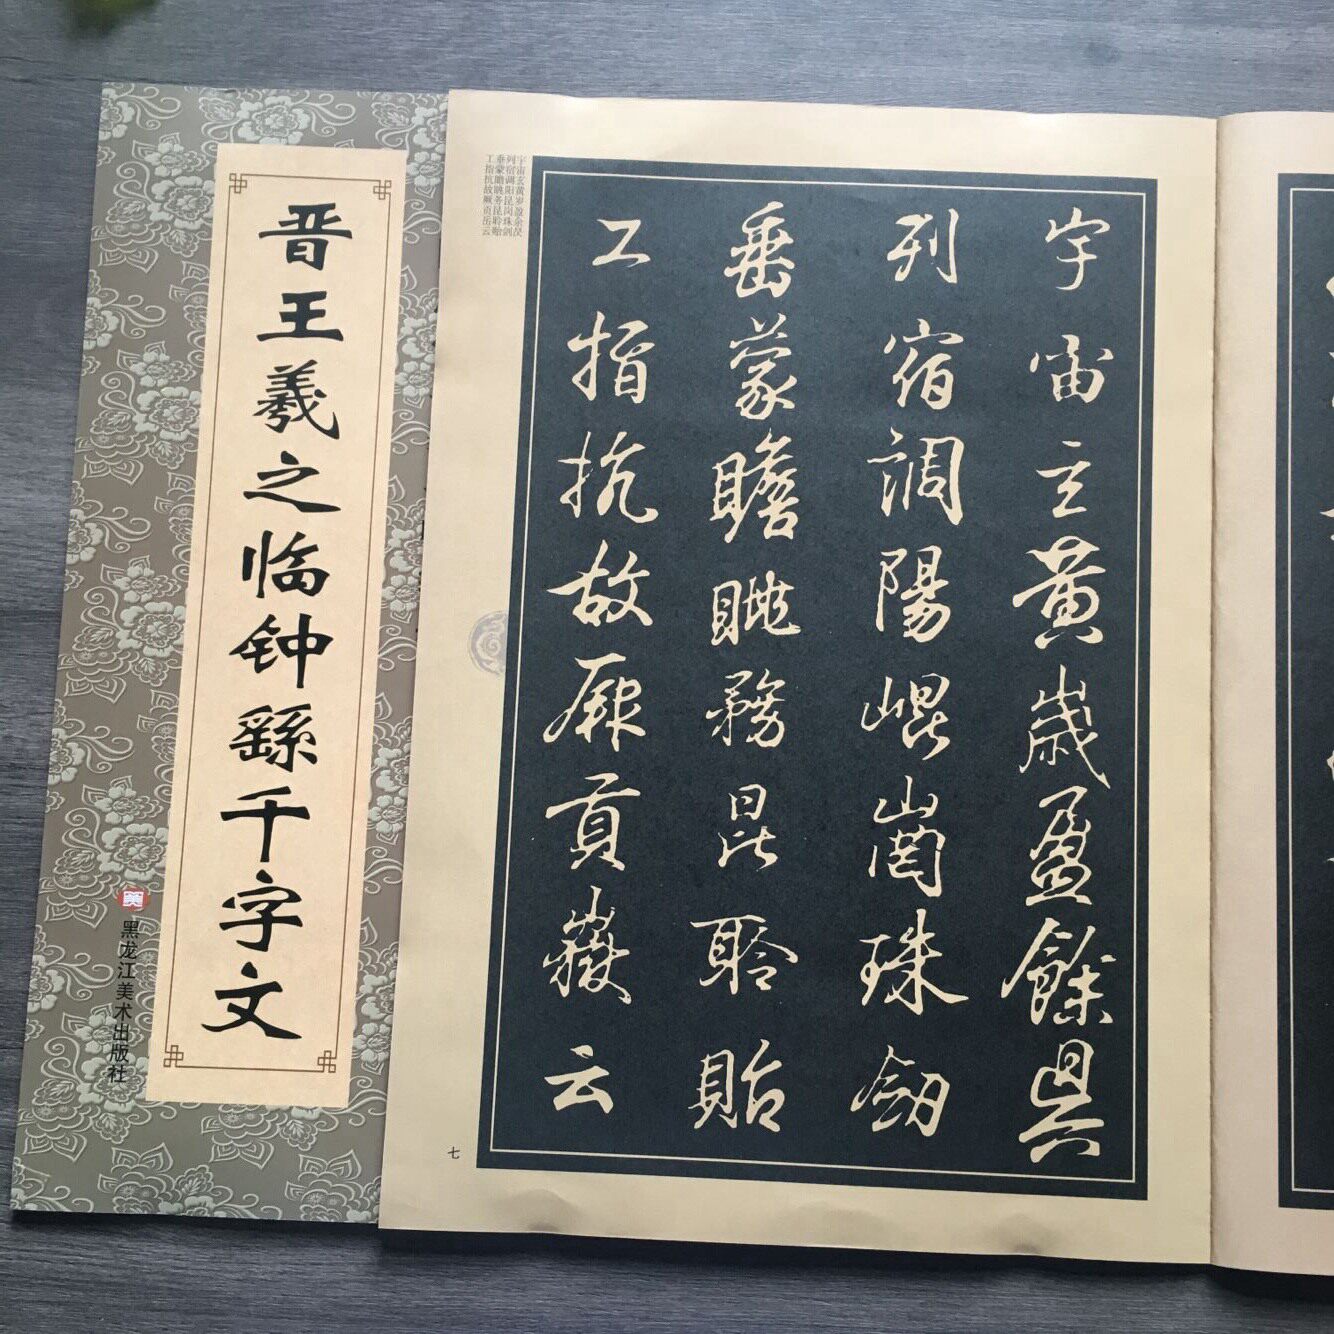 晋王羲之临钟繇千字文
黑龙江美术出版社
宇宙玄黄岁盈余昃
列宿调阳昆岗珠剑
垂蒙瞻眺务昆聆贻
工指抗故厥贡岳云
宇宙玄黄歲盈餘昃
列宿調陽崐崗珠劒
垂蒙瞻眺務昆聆貽
工指抗故厥貢嶽云
七